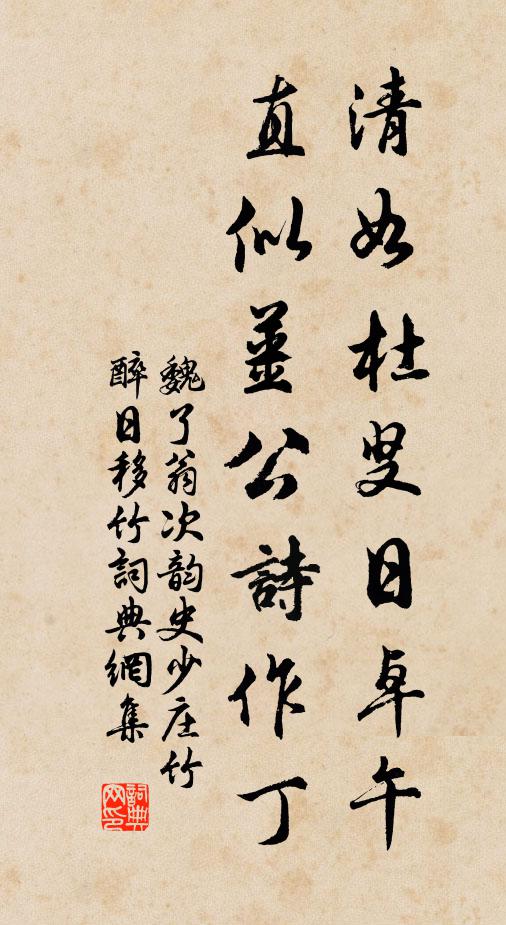 清如杜叟日卓午
直似姜公詩作丁
魏了翁次韵史少庄竹
醉日移竹詞典網集
詞典網印